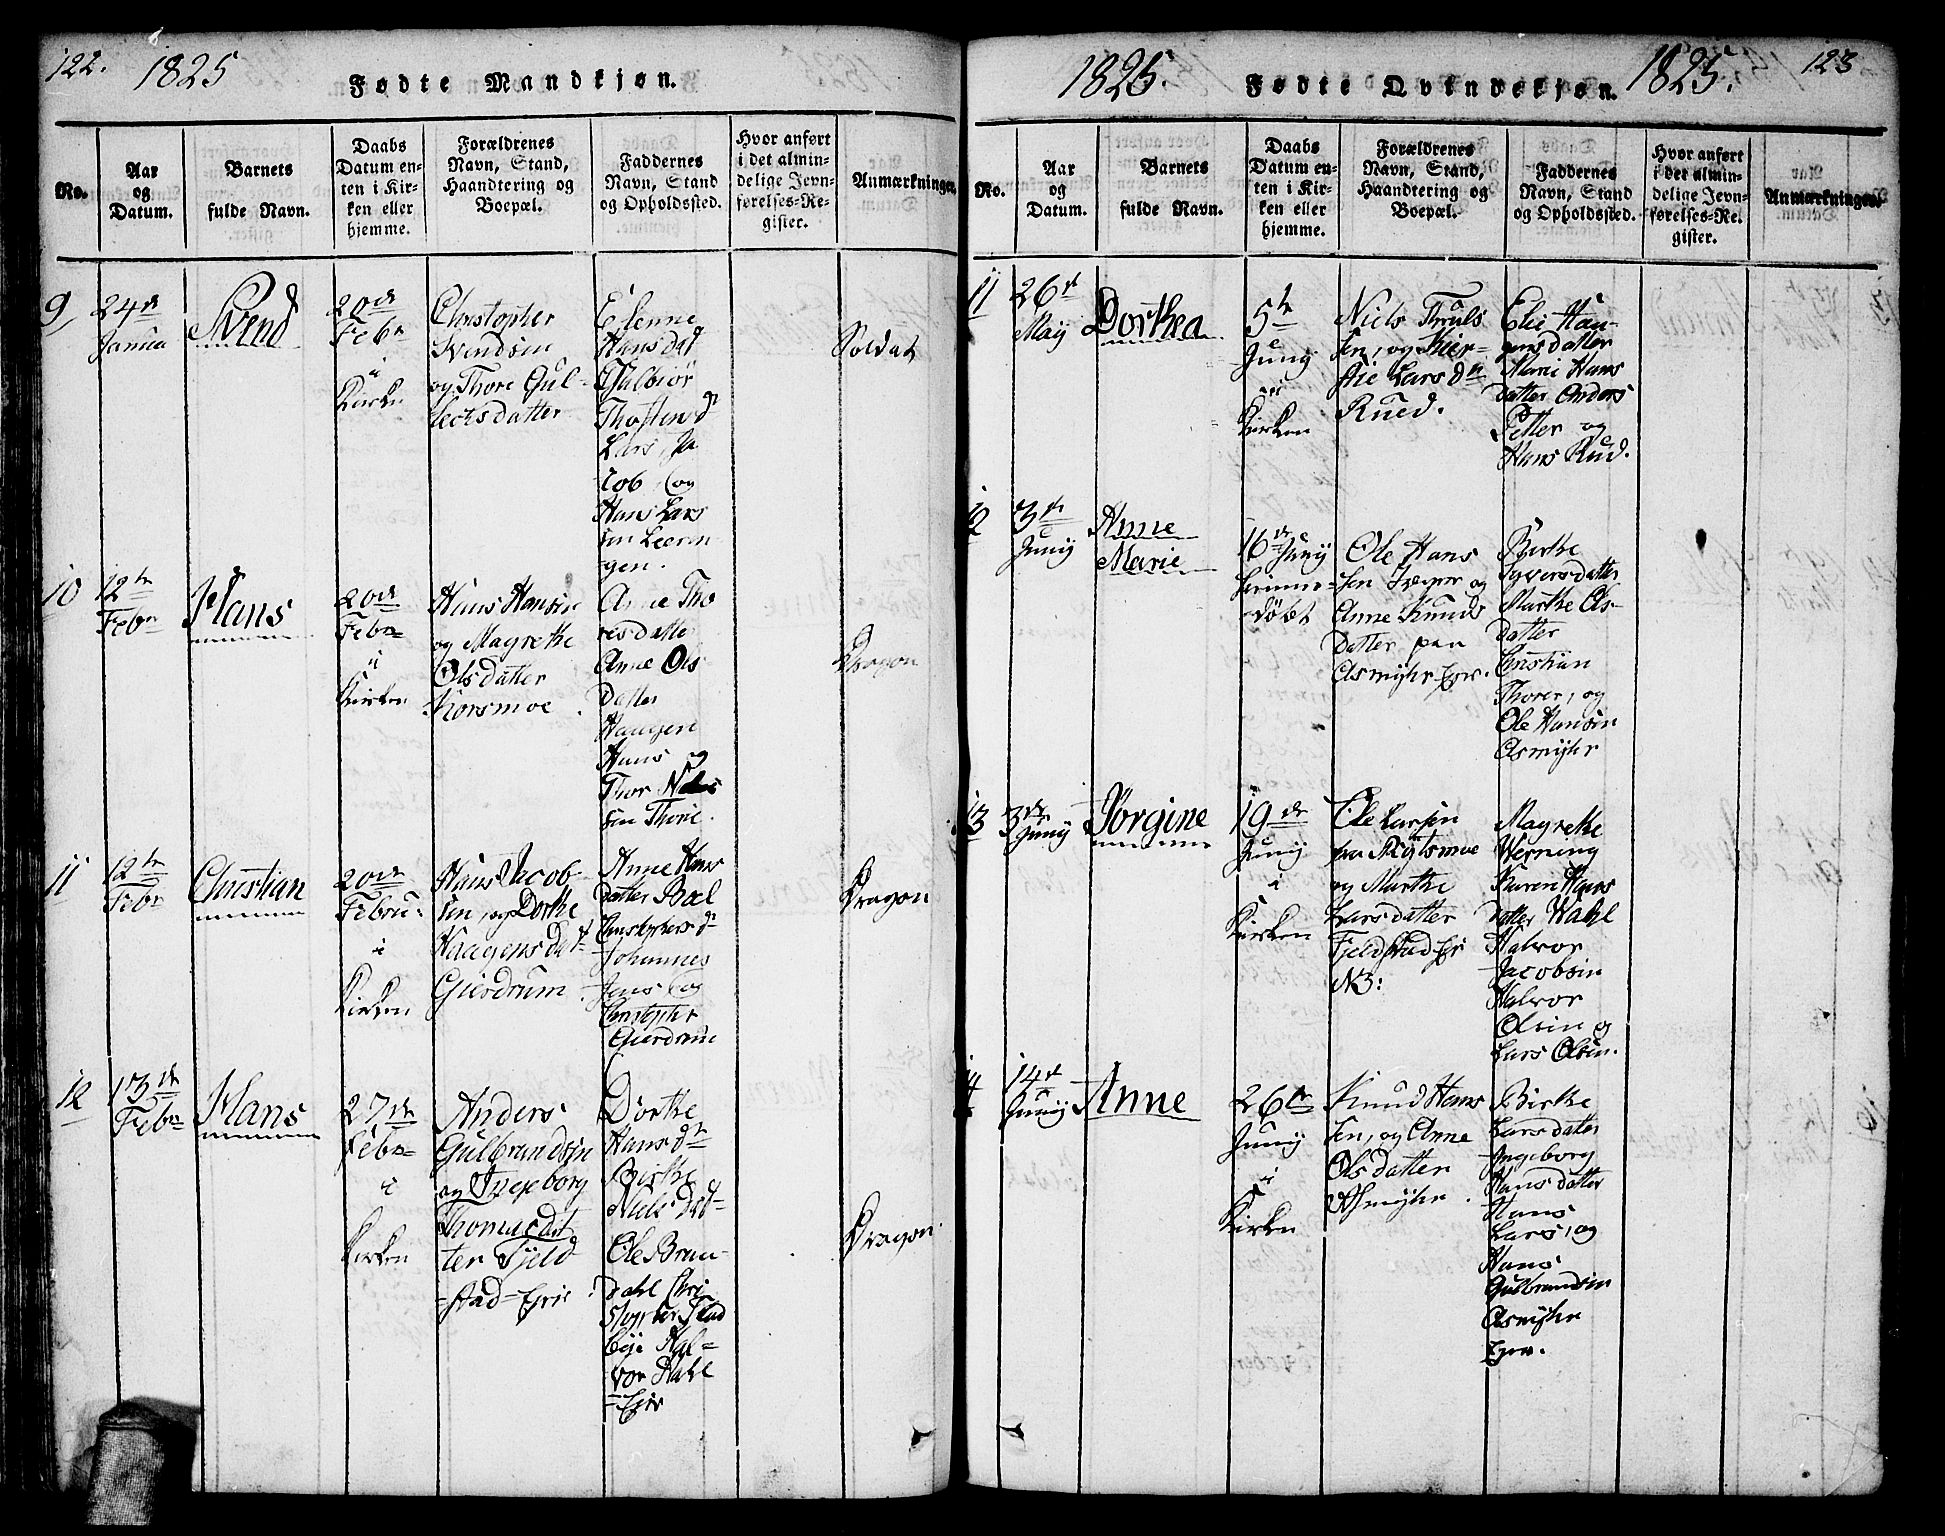 122. 1825
Fødte Mandkjøn.
No.
Aar
og
Datum.
Barnets
fulde Navn.
Daabs
Datum en-
ten i Kir-
ken eller
hjemme.
Forældrenes
Navn, Stand,
Haandtering og
Boepæl.
Faddernes
Navn, Stand
og Opholdssted.
Hvor anført
i det almin-
delige Jevn-
førelses-Re-
gister.
Anmærkninger.
9,
24de
Janua
Svend
20de
Febr
i
Kirken
Christopher
Svendsen
og Thore Gul-
lechsdatter
Hansdat
Gulbiør
Thostend
Lars, Ja
cob, og
Hans Lars
sen Leerin
gen.
Soldat
10
12te
Febr
Hans
20de
Febr
i
Kirken
Hans Hansen
og Magrethe
Olsdatter
Korsmoe.
Anne Tho
resdatter
Anne Ols
datter
Haagen
Hans og
Thor Niels
sen Thorie.
Dragon
11
12te
Febr
Christian
20de
Febru.
i
Kirken
Hans Jacob
sen, og Dorthe
Haagensdat
Gierdrum.
Anne Hans
datter Boel
Christophersdr
Johannes
Jens og
Christopher
Gierdrum
Dragon
12
13de
Febr
Hans
27de
Febr
i
Kirken
Anders
Gulbrandsen
og Ingeborg
Thomasdat
ter Fjeld
stad-Ejer
Dorthe
Hansdr
Birthe
Nielsdat-
Ole Bran-
dahl Chri
stopher Flad
bye Hal-
vor Dahl
-Ejer
Dragon
1825. 1825. 123
Fødte Qvindekjøn.
No.
Aar
og
Datum.
Barnets
fulde Navn.
Daabs
Datum en-
ten i Kir-
ken eller
hjemme.
Forældrenes
Navn, Stand,
Haandtering og
Boepæl.
Faddernes
Navn, Stand
og Opholdssted.
Hvor anført
i det almin-
delige Jevn-
førelses-Re-
gister.
Anmærkninger.
11
26de
Maij
Dorthea
5te
Junij
i
Kirken
Niels Thruls
sen, og Kier-
stie Larsdr
Rued.
Elie Haa-
gensdatter
Marie Hans
datter Anders
Petter og
Hans Rud.
12
3de
Junij
Anne
Marie
16de Junij
hiemme-
døbt
Ole Hans
sen og
Anne Knuds
datter paa
Asmyhr Ejer.
Birthe
Syversdatter
Marthe Ols-
datter
Christian
Thorer, og
Ole Hansen
Asmyhr
13
3de
Junij
Jørgine
19de
Junij
i
Kirken
Ole Larsen
fra
og Marthe
Larsdatter
Fjeldstad Ejr
NB:
Magrethe
Werning
Karen Hans
datter Wahl
Halvor
Jacobsen
Halvor
Olsen og
Lars Olsen.
14
14de
Junij
Anne
26de
Junij
i
Kirken
Knud Hans
sen, og Anne
Olsdatter
Asmyhr.
Birthe
Larsdatter
Ingeborg
Hansdatter
Hans
Lars, og
Hans
Gulbrandsen
Asmyhr
Ejere.